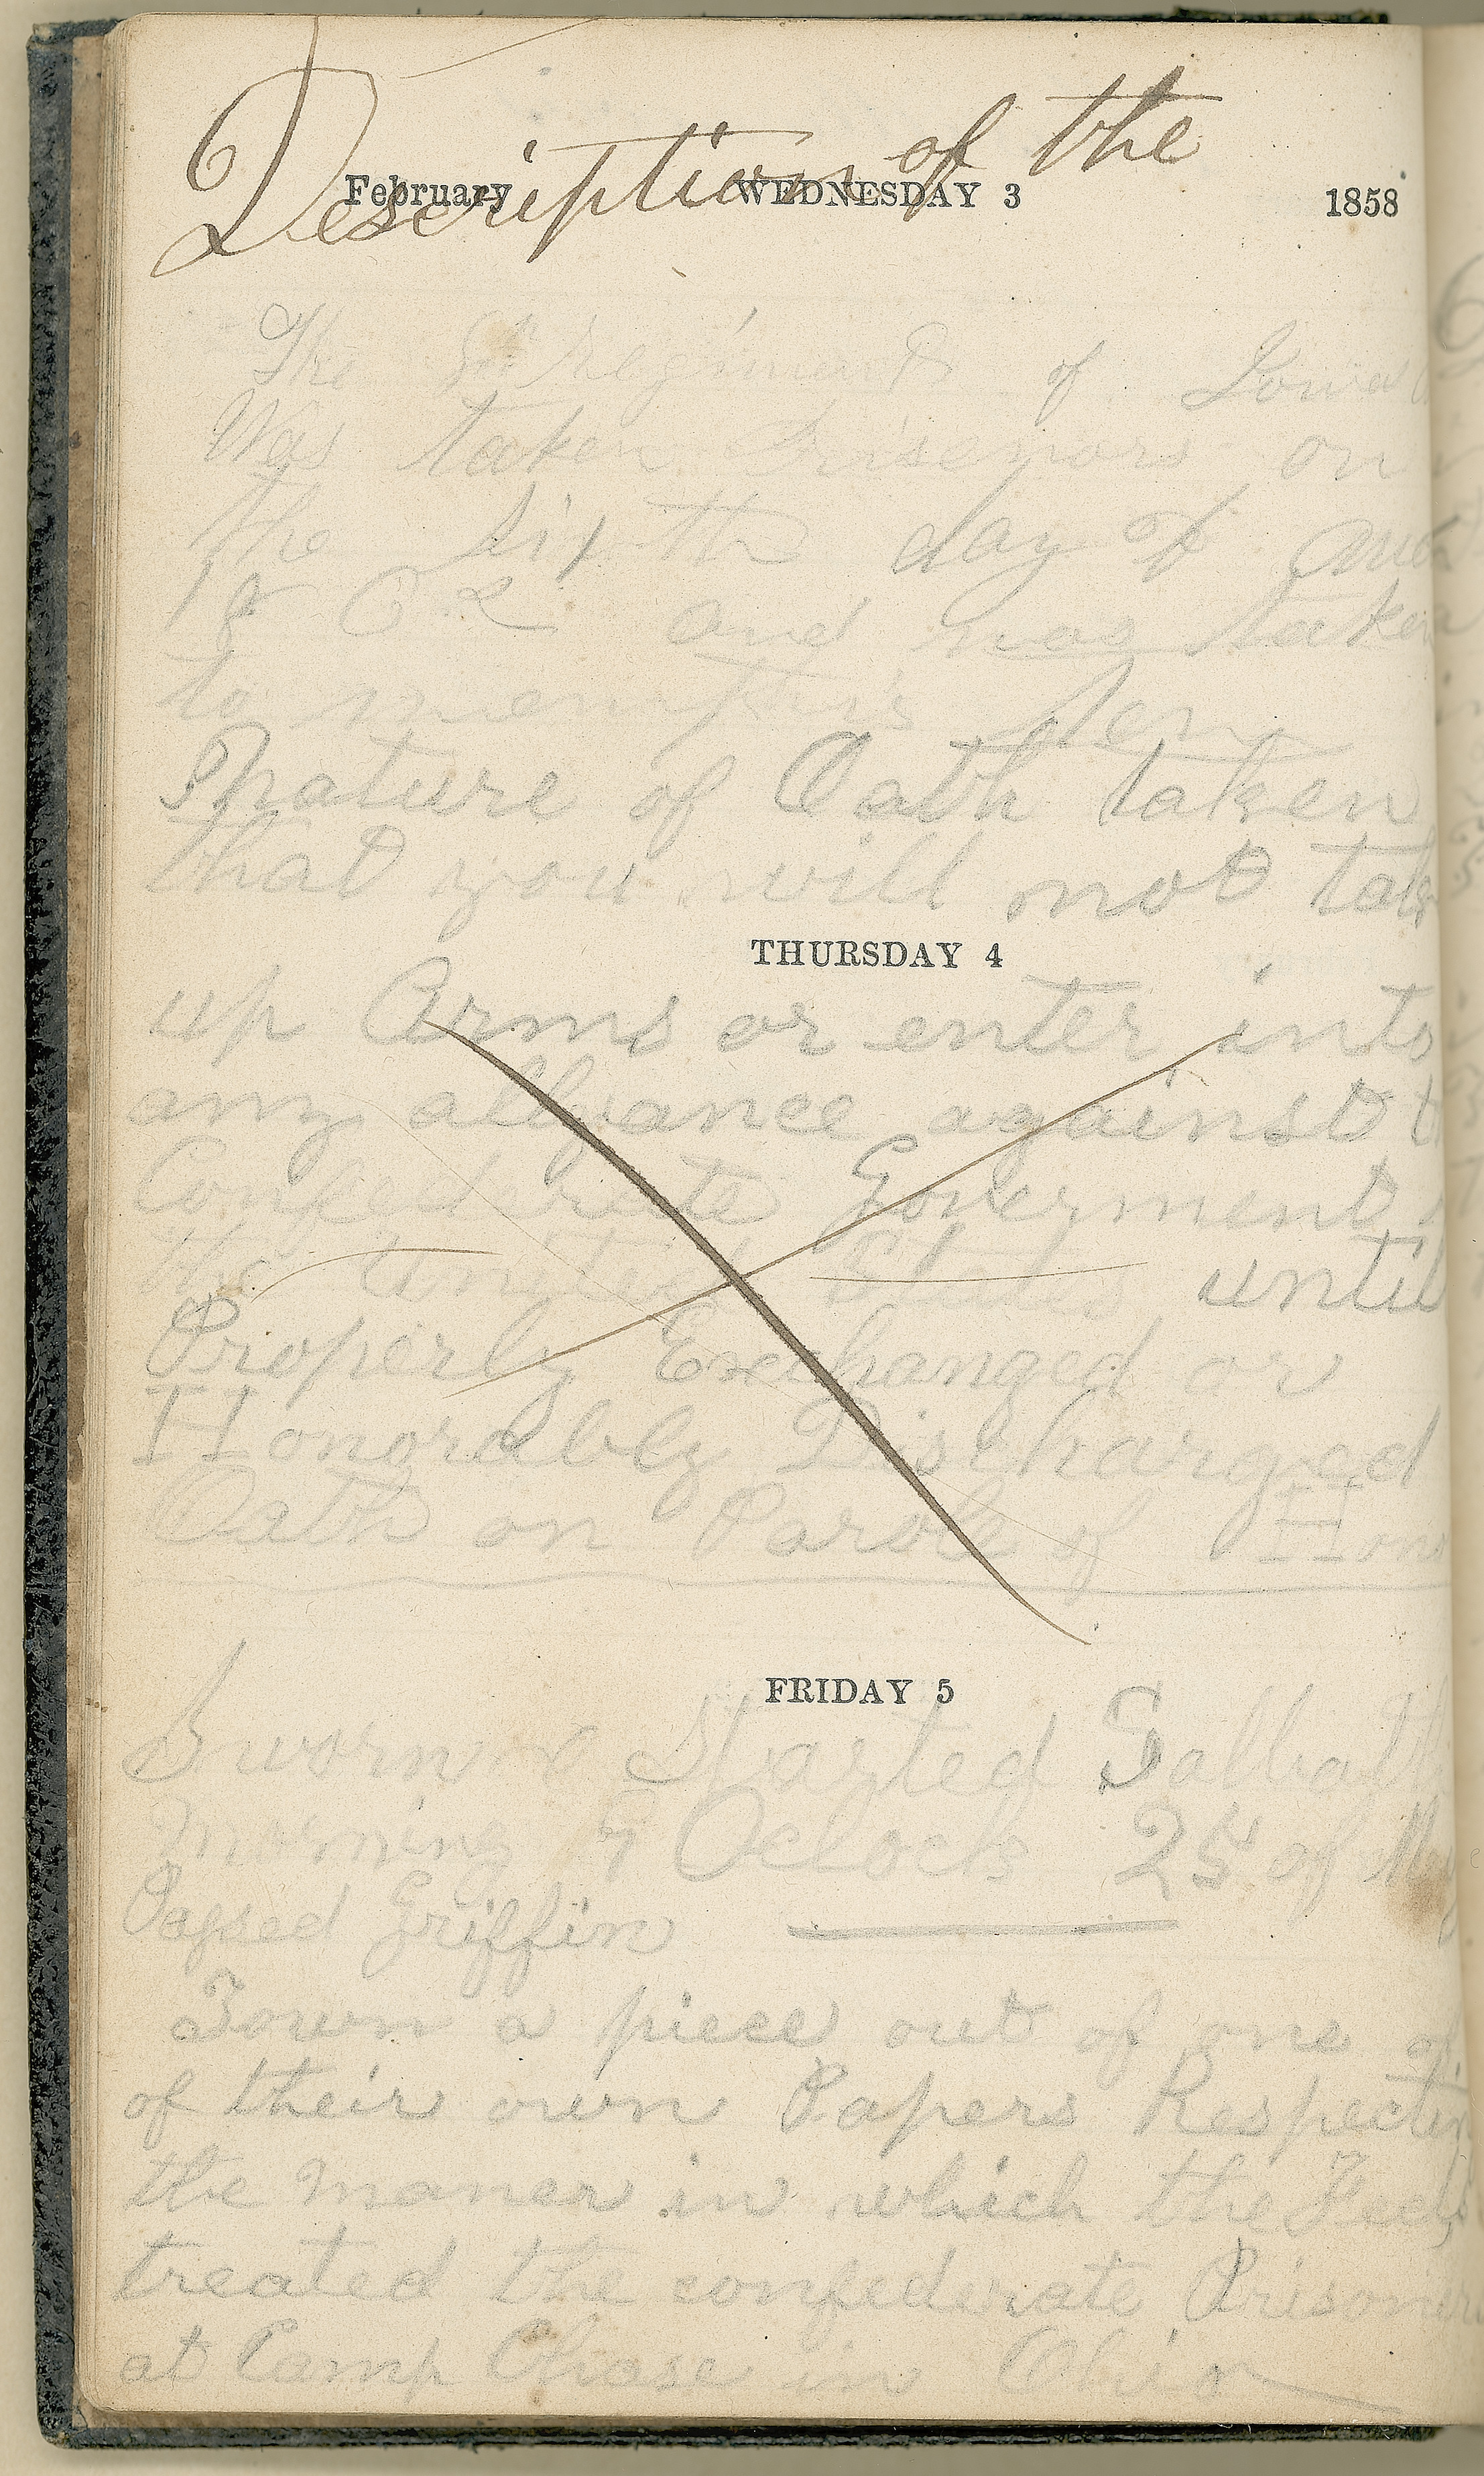 Description of the
February WEDNESDAY 3 1858
The 8th Regiment of Iowa
Was taken Prisenors on
the Sixth day of
1862 and was taken
to memphis Ten
nature of Oath taken
that you will not take
up Arms or enter into
any allyance against
Confederate Goverment
the United States until
Properly Exchanged or
Honorably Discharged
Oath on Parole of Hono
Sworn & Started Sabbath
Morning 9 Oclock 25 of May
Passed Griffin
Town a piece out of one of
of their own Papers Respecting
the Maner in which the Feds
treated the confederate Prisoners
at Camp Chase in Ohio
THURSDAY 4
FRIDAY 5